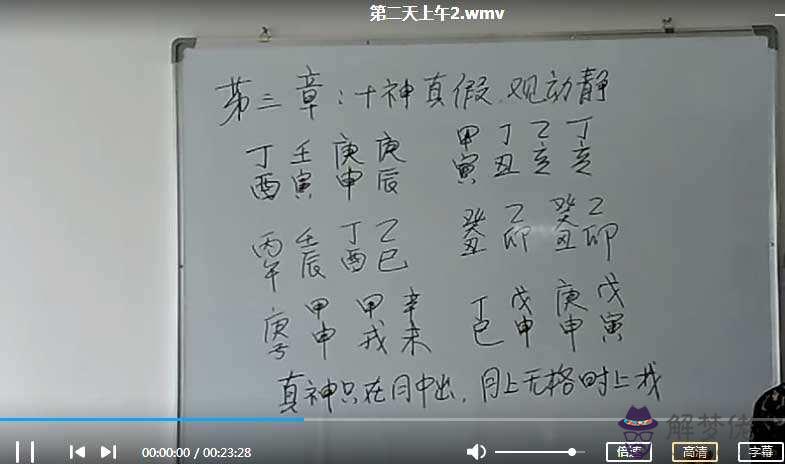 第二天上午2.wmv
第三章:十神真假.观动静
丁 壬 庚 庚 甲 丁 乙 丁
酉 寅 申 辰 寅 丑 亥 亥
丙 壬 丁 乙 癸 乙 癸 乙
午 辰 酉 巳 丑 卯 丑 卯
庚 甲 甲 辛 丁 戊 庚 戊
子 申 戌 未 巳 申 申 寅
真神只在月中出,月上无格时上找
解梦佛
00:00:00 / 00:23:28
倍速 高清 字幕